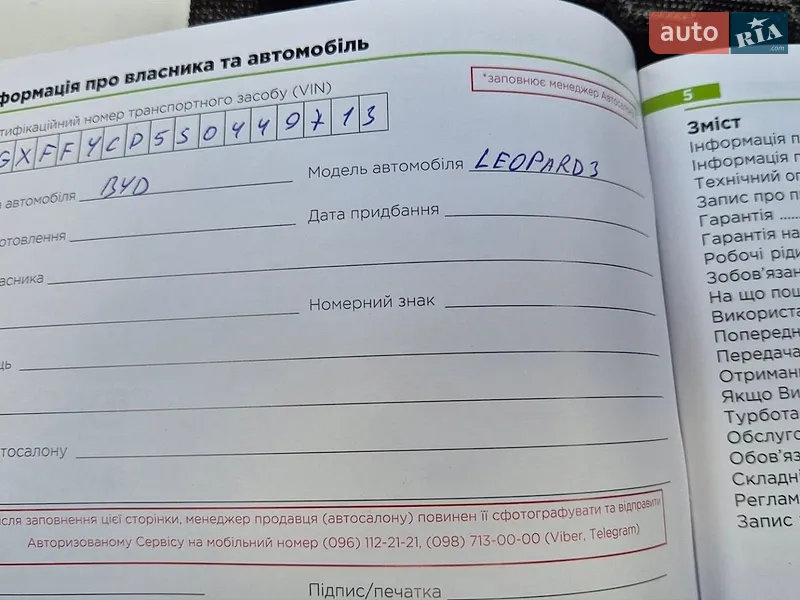 auto RIA .com
формація про власника та автомобіль
*заповнює менеджер Автосалону
тифікаційний номер транспортного засобу (VIN)
GXFFYCD5S0449713
автомобіля BYD
Модель автомобіля LEOPARD 3
отовлення
Дата придбання
асника
Номерний знак
ць
тосалону
ісля заповнення цієї сторінки, менеджер продавця (автосалону) повинен її сфотографувати та відправити
Авторизованому Сервісу на мобільний номер (096) 112-21-21, (098) 713-00-00 (Viber, Telegram)
Підпис/печатка
5
Зміст
Інформація п
Інформація п
Технічний оп
Запис про п
Гарантія ......
Гарантія на
Робочі ріди
Зобов'язан
На що пош
Використа
Попередн
Передача
Отриманн
Якщо Ви
Турбота
Обслуго
Обов'яз
Складні
Реглам
Запис